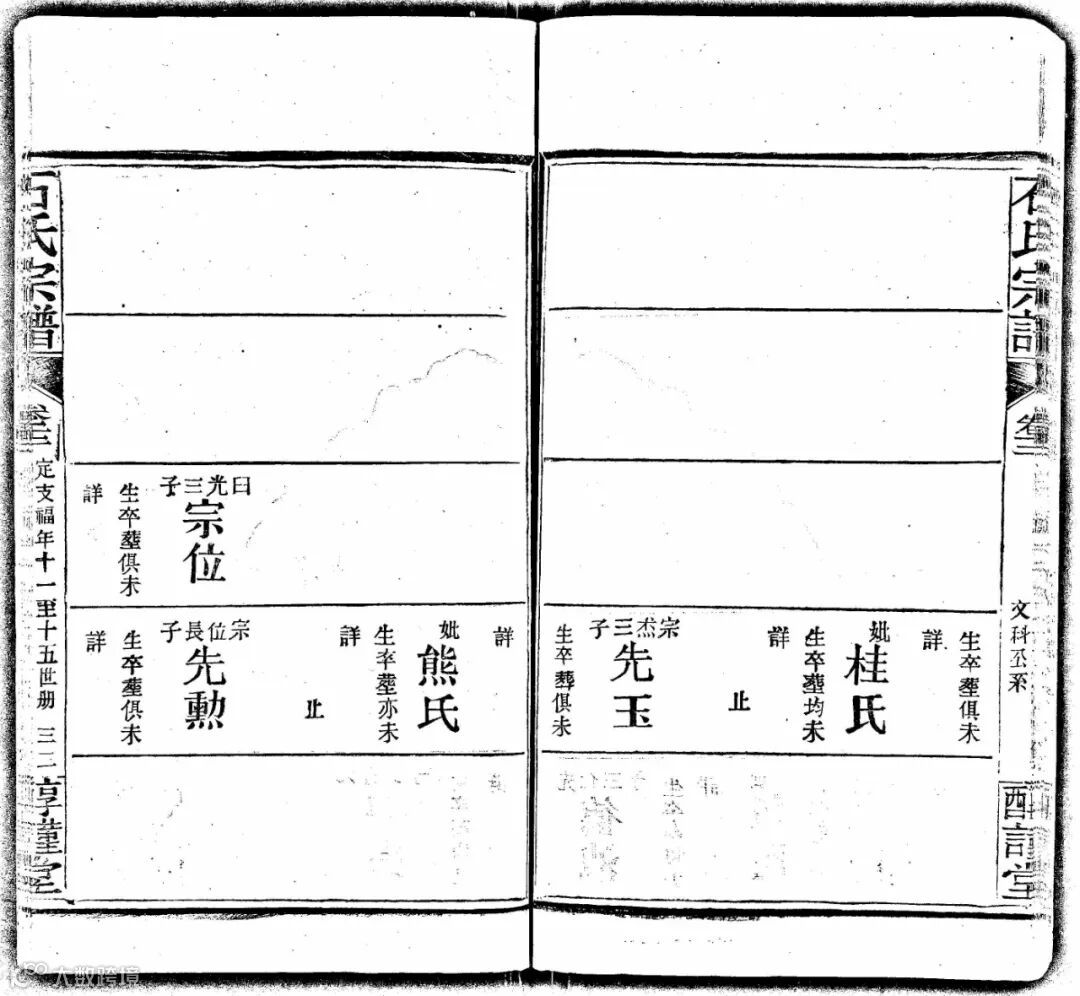 石氏宗譜
卷三
文科公系
生卒塟俱未
詳
妣
桂氏
生卒塟均未
詳
止
宗烋三子
先玉
生卒葬俱未
詳
妣
熊氏
生卒塟亦未
詳
止
曰光三子
宗位
生卒塟俱未
詳
宗位長子
先勲
生卒塟俱未
詳
石氏宗譜
卷三
定支福年十一至十五世册
三二
大数跨境